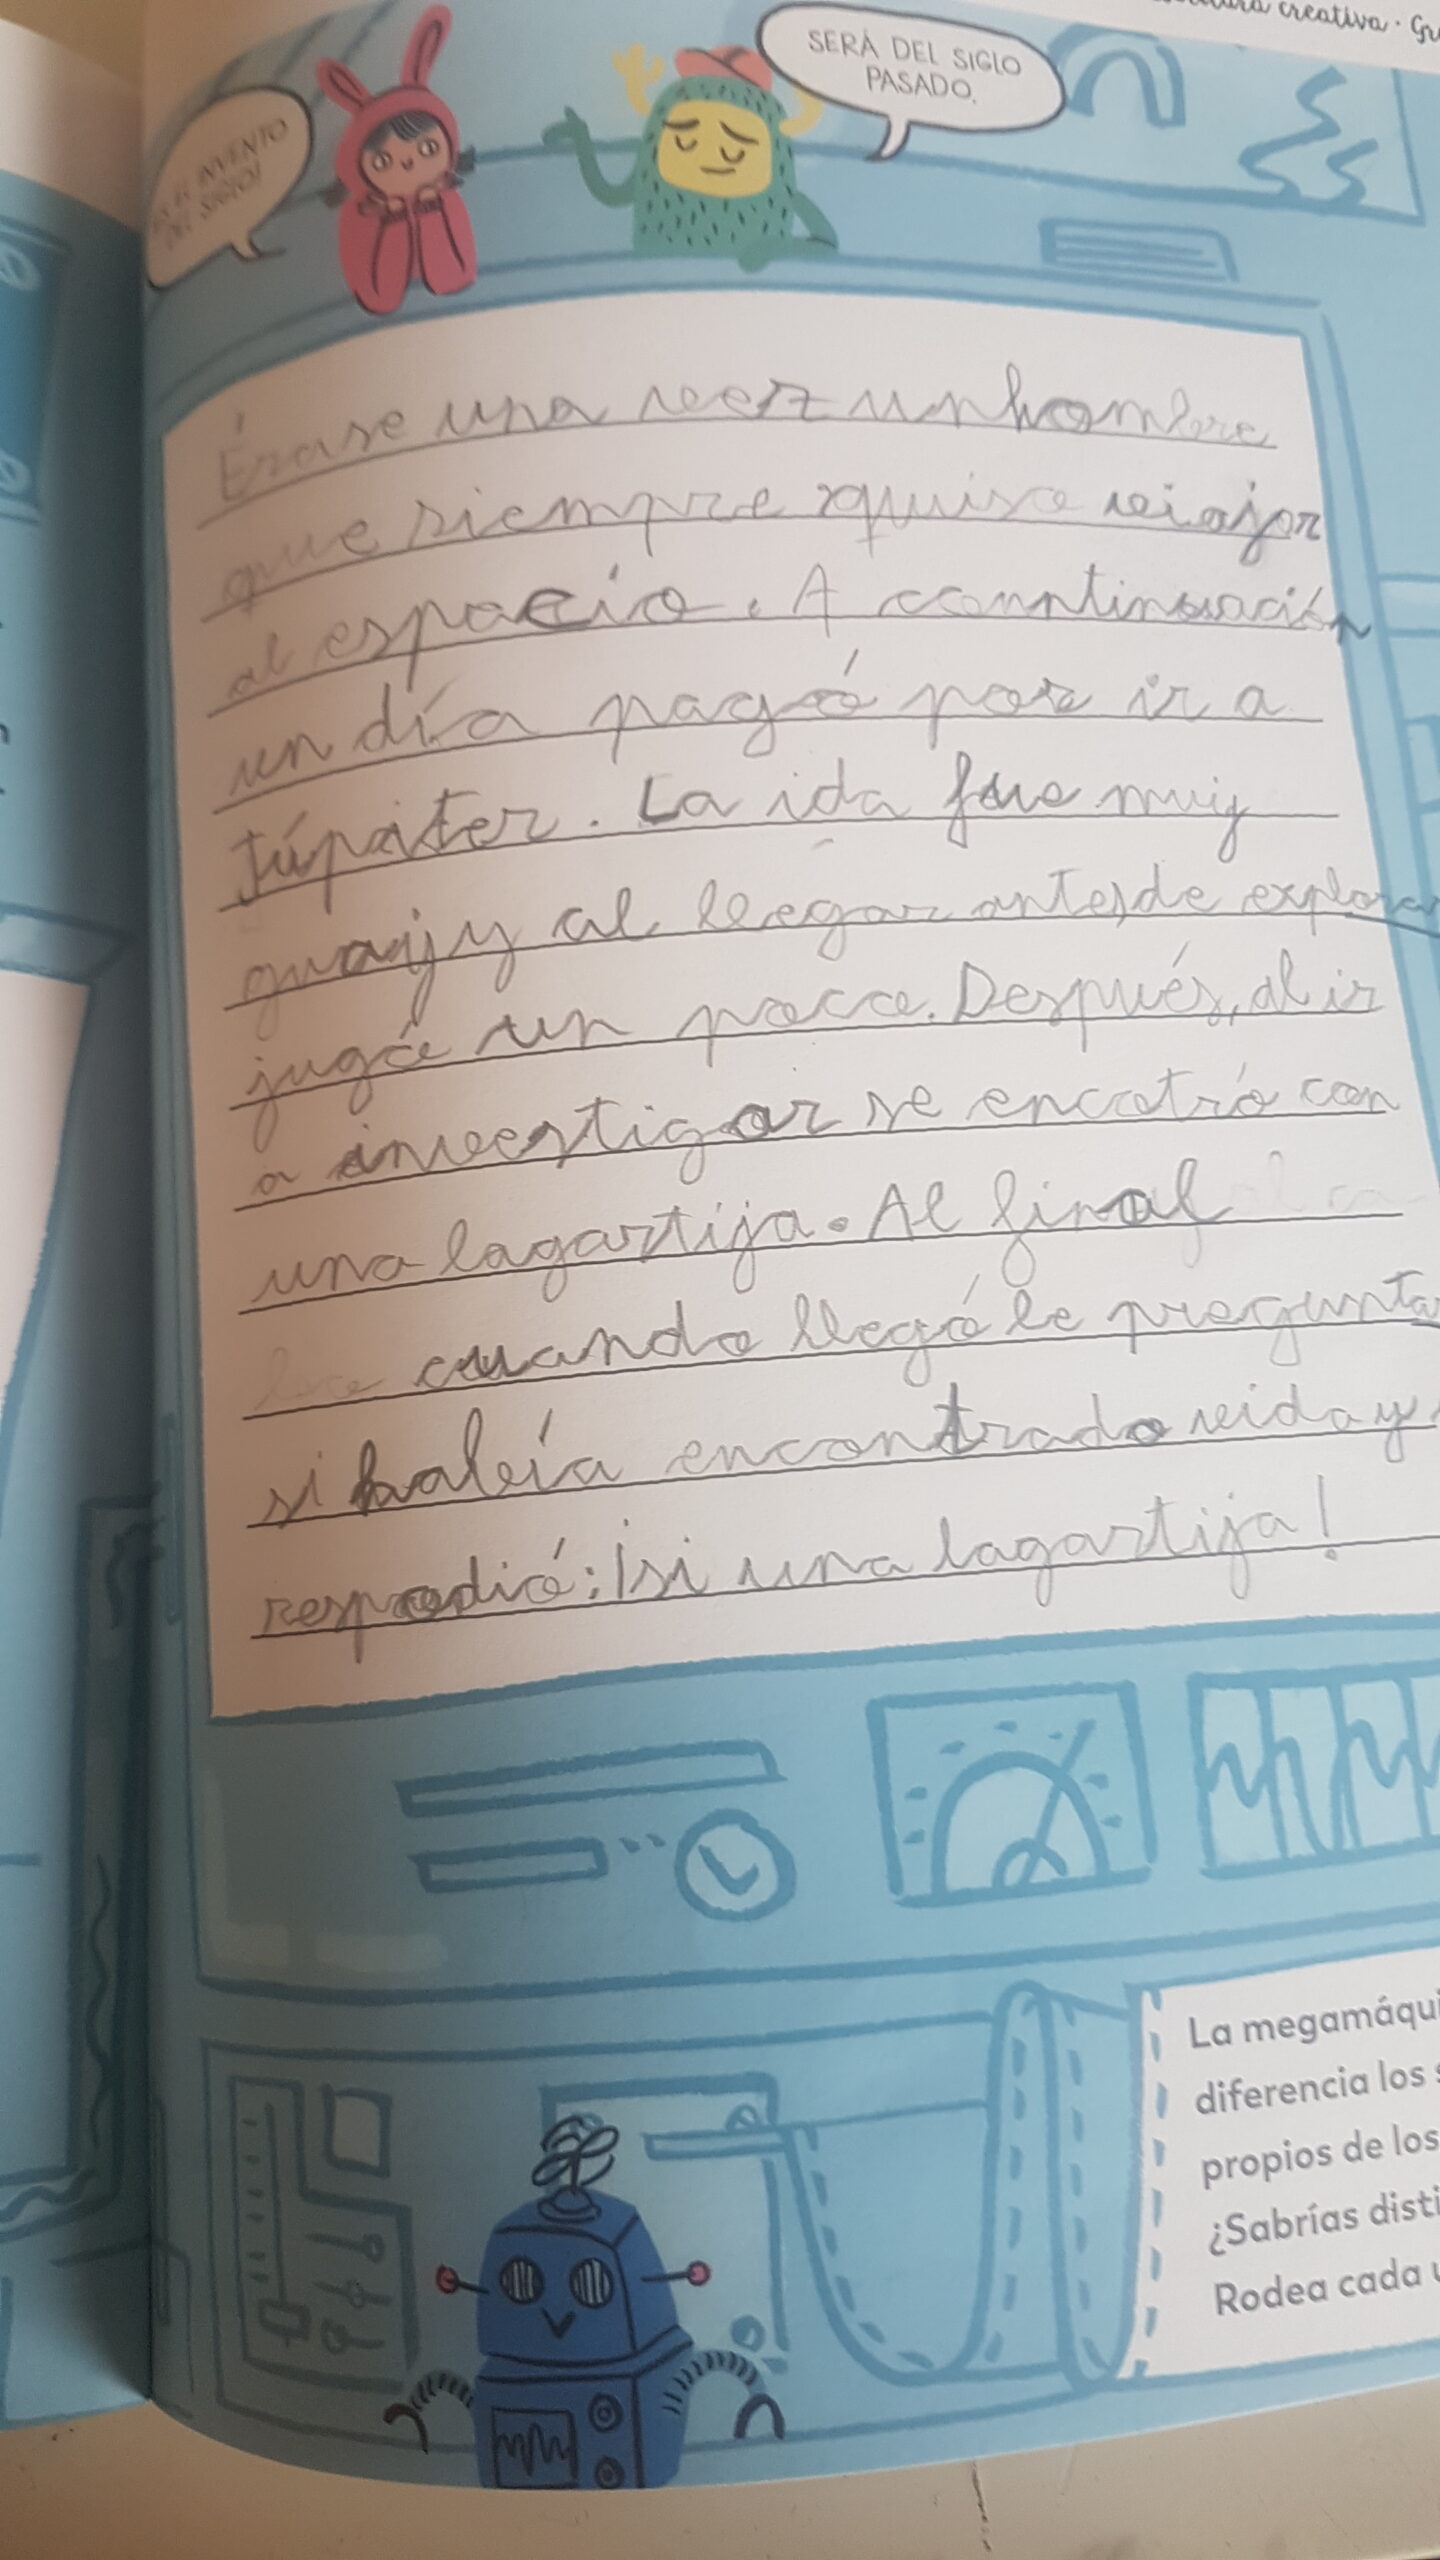 creativa · Gru
¡ES EL INVENTO
DEL SIGLO!
SERÁ DEL SIGLO
PASADO.
Érase una vez un hombre
que siempre quiso viajar
al espacio. A continuación
un día pagó por ir a
Júpiter. La ida fue muy
guay y al llegar antes de explorar
jugó un poco. Después, al ir
a investigar se encotró con
una lagartija. Al final
cuando llegó le pregunta
si había encontrado vida y
respodió: ¡si una lagartija!
La megamáqui
diferencia los s
propios de los
¿Sabrías disti
Rodea cada u